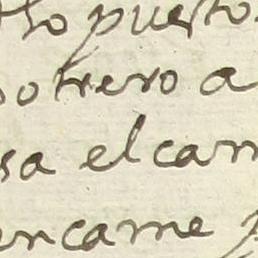 tho puesto
potrero a
sa el cam
encame p